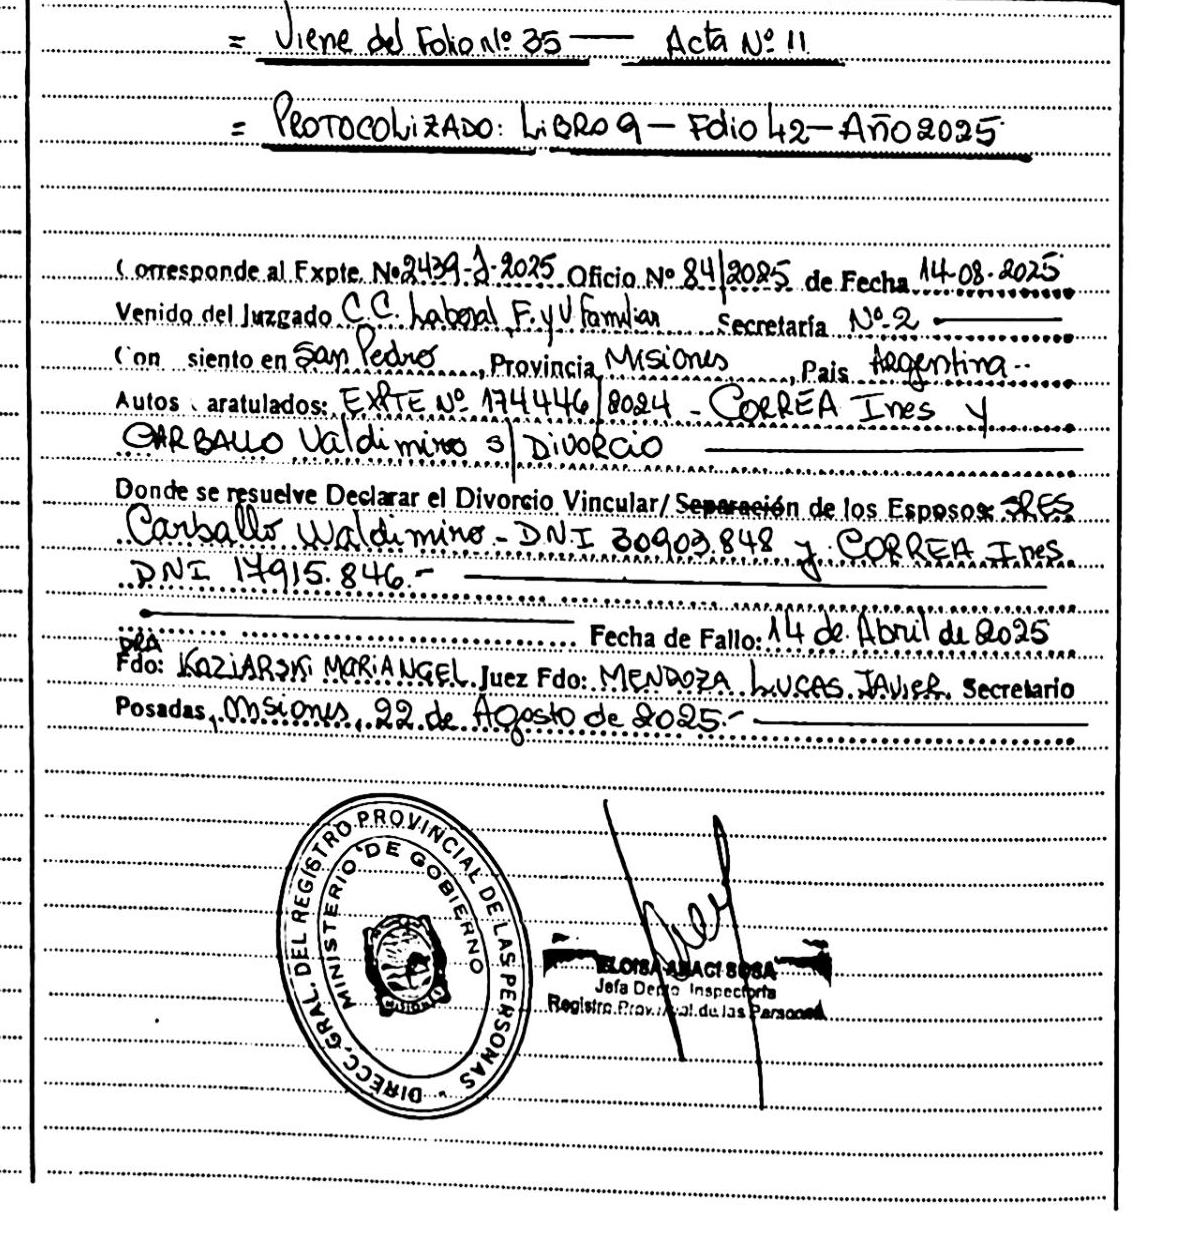 = Viene del Folio Nº 35 — Acta Nº 11
= PROTOCOLIZADO: LiBRO 9 – Folio 42 – Año 2025
Corresponde al Expte. Nº 2439-J-2025 Oficio Nº 84/2025 de Fecha 14-08-2025
Venido del Juzgado C.C. Laboral, F. y V. Familiar Secretaría Nº 2
Con siento en San Pedro, Provincia Misiones, Pais Argentina
Autos aratulados: EXPTE Nº 174446/2024 - CORREA Ines y
CARBALLO Valdimiro s/ DiVORCiO
Donde se resuelve Declarar el Divorcio Vincular/ Separación de los Esposos: SRES
Carballo Waldimiro - DNI 30903.848 y CORREA Ines
DNI 17915.846.-
Fecha de Fallo: 14 de Abril de 2025
DRA
Fdo: KOZIARSKi MARiANGEL Juez Fdo: MENDOZA LUCAS JAVIER Secretario
Posadas, Misiones, 22 de Agosto de 2025.-
DIRECC. GRAL. DEL REGISTRO PROVINCIAL DE LAS PERSONAS
MINISTERIO DE GOBIERNO
MISIONES
ELOISA ARACI SOSA
Jefa Depto Inspectoría
Registro Provincial de las Personas